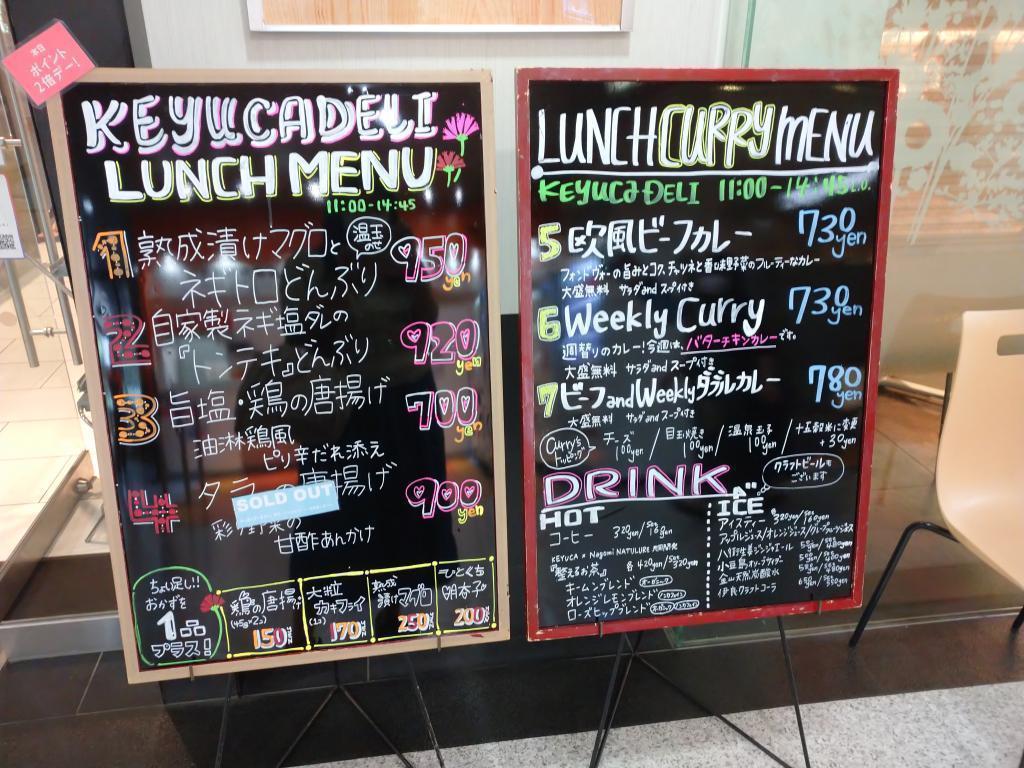 本日
ポイント
2倍デー!
KEYUCADELI
LUNCH MENU
11:00-14:45
1 熟成漬けマグロと 温玉のせ
ネギトロどんぶり
950yen
2 自家製ネギ塩ダレの
『トンテキ』どんぶり
920yen
3 旨塩・鶏の唐揚げ
油淋鶏風
ピリ辛だれ添え
700yen
4 タラの唐揚げ
SOLD OUT
彩り野菜の
甘酢あんかけ
900yen
ちょい足し!!
おかずを
1品
プラス!
鶏の唐揚げ
(45g×2コ)
150
大粒
カキフライ
(1コ)
170
漬けマグロ
250
ひとくち
明太子
200
LUNCH CURRY MENU
KEYUCA DELI 11:00-14:45L.O.
5 欧風ビーフカレー 730yen
フォンドヴォーの旨みとコク、チャツネと香味野菜のフルーティーなカレー
大盛無料 サラダand スープ付き
6 Weekly Curry 730yen
週替りのカレー!今週は、バターチキンカレーです。
大盛無料 サラダand スープ付き
7 ビーフandWeeklyダブルカレー 780yen
大盛無料 サラダand スープ付き
Curry's トッピング
チーズ 100yen / 目玉焼き 100yen / 温泉玉子 100yen / 十五穀米に変更 +30yen
DRINK
クラフトビールも
ございます
HOT
コーヒー 320yen/Set 160yen
KEYUCA × Nagomi NATULURE
『整えるお茶』 各420yen
キームンブレンド オーガニック
オレンジレモンブレンド ノンカフェイン
ローズヒップブレンド オーガニック ノンカフェイン
ICE
アイスティー 320yen/Set 160yen
アップルジュース/オレンジジュース/グレープフルーツジュース
八郎生姜ジンジャエール
小豆島オリーブサイダー
金山天然炭酸水
伊良コーラ